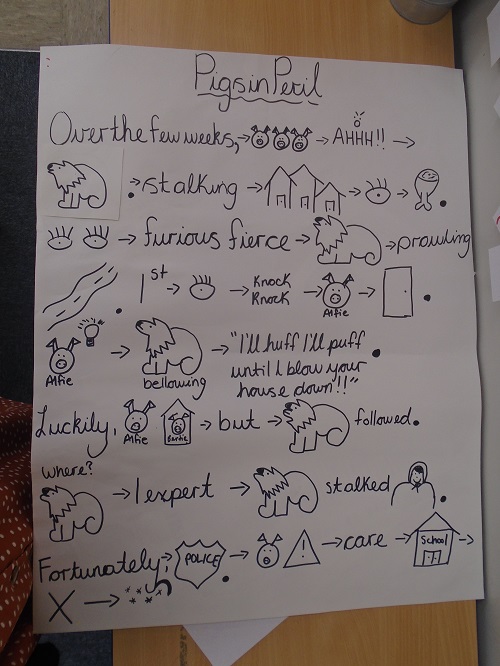 Pigs in Peril
Over the few weeks, AHHH!!
stalking
furious fierce prowling
1st Knock Knock Alfie
Alfie bellowing "I'll huff I'll puff until I blow your house down!!"
Luckily, Alfie Bertie but followed.
where? 1 expert stalked
Fortunately, POLICE ! care School
X